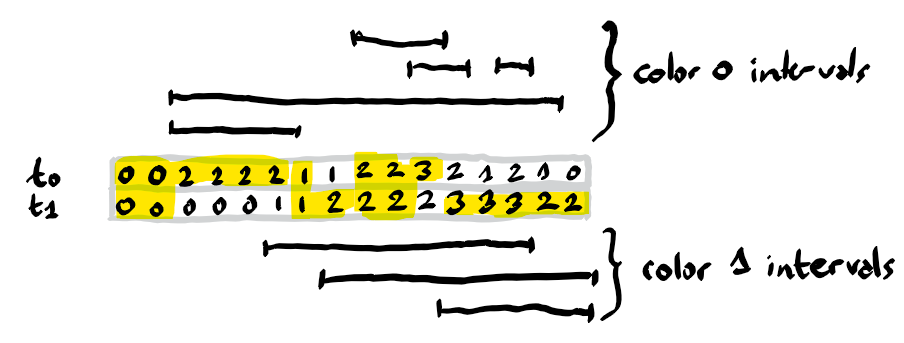 color 0 intervals
t0 0 0 2 2 2 2 1 1 2 2 3 2 1 2 1 0
t1 0 0 0 0 0 1 1 2 2 2 2 3 3 3 2 2
color 1 intervals